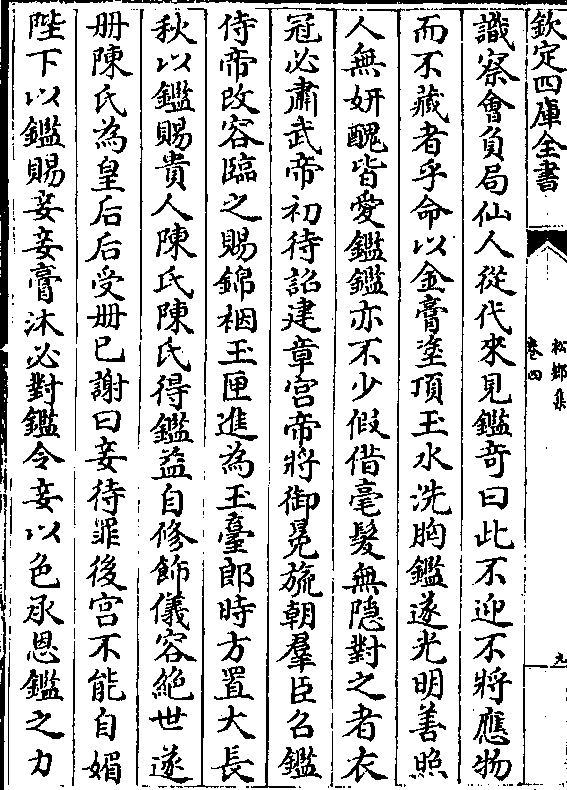 欽定四庫全書
松鄉集
卷四
九
識察會負局仙人從代來見鑑奇曰此不迎不將應物
而不藏者乎命以金膏塗頂玉水洗胸鑑遂光明善照
人無妍醜皆愛鑑鑑亦不少假借毫髮無隐對之者衣
冠必肅武帝初待詔建章宫帝將御冕旒朝羣臣召鑑
侍帝改容臨之賜錦裀玉匣進為玉臺郎時方置大長
秋以鑑賜貴人陳氏陳氏得鑑益自修飾儀容絶世遂
册陳氏為皇后后受册已謝曰妾待罪後宫不能自媚
陛下以鑑賜妾妾膏沐必對鑑令妾以色承恩鑑之力